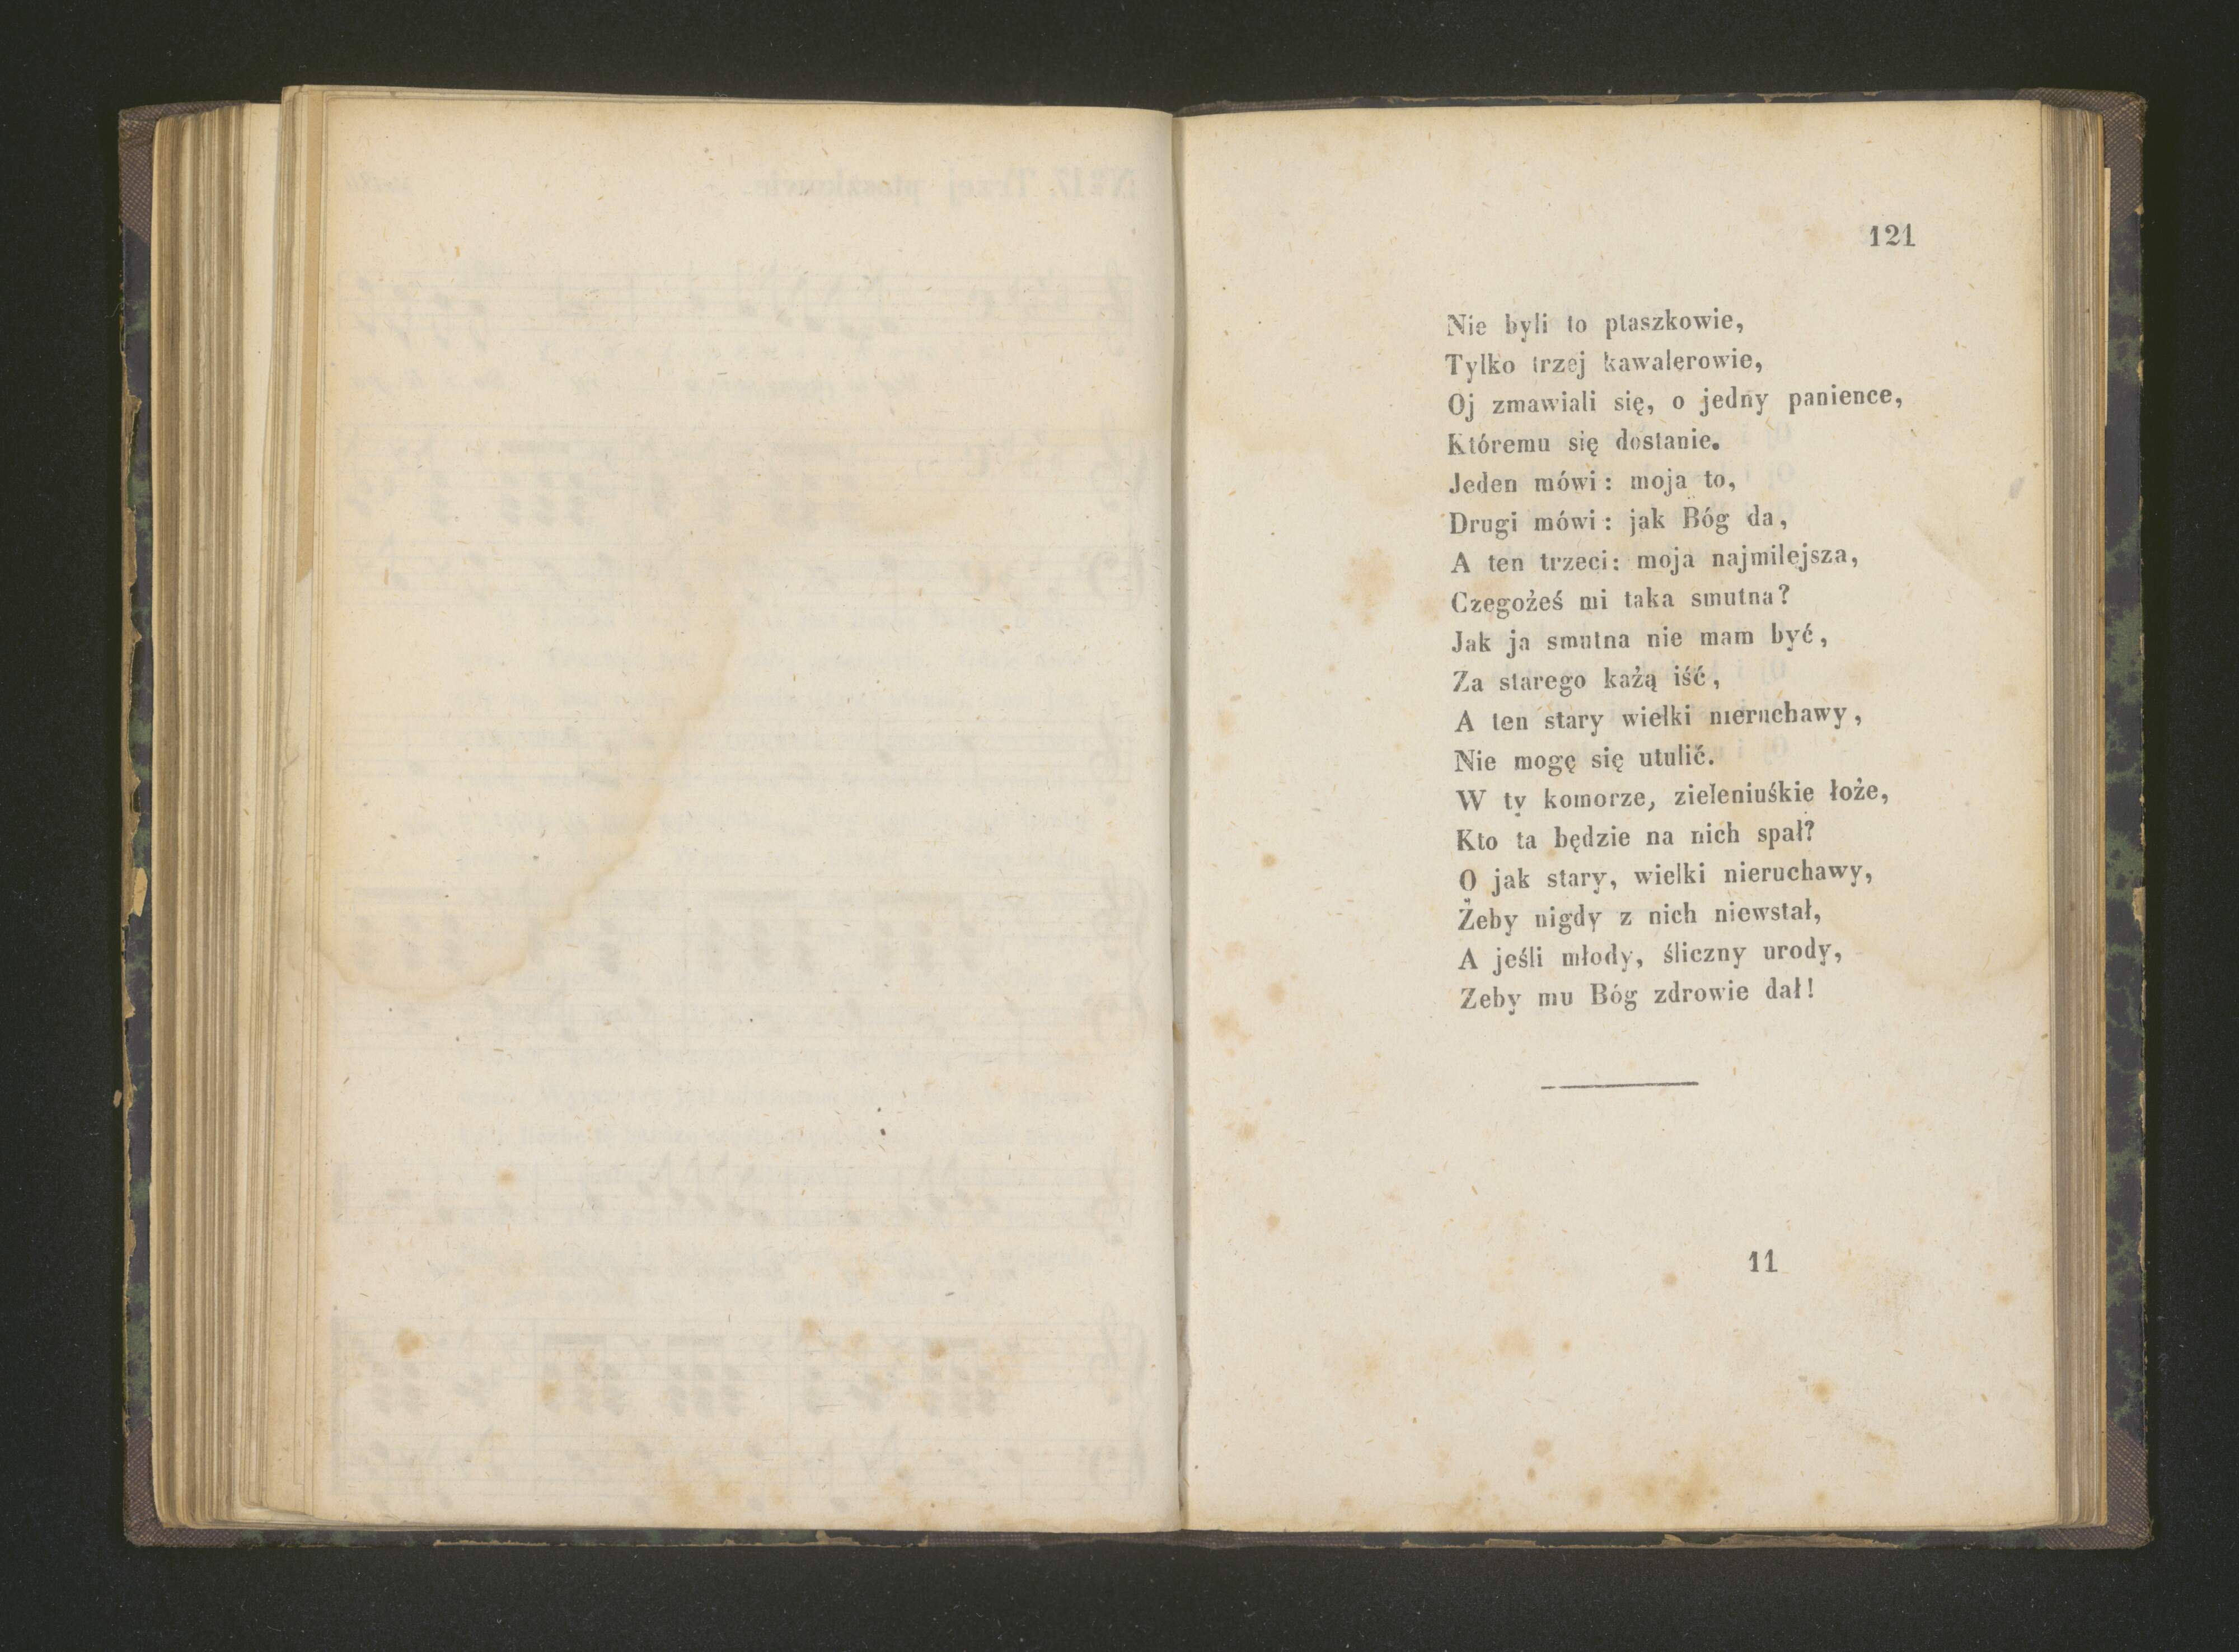 121
Nie byli to ptaszkowie,
Tylko trzej kawalerowie,
Oj zmawiali się, o jedny panience,
Któremu się dostanie.
Jeden mówi: moja to,
Drugi mówi: jak Bóg da,
A ten trzeci: moja najmilejsza,
Czegożeś mi taka smutna?
Jak ja smutna nie mam być,
Za starego każą iść,
A ten stary wielki nieruchawy,
Nie mogę się utulić.
W ty komorze, zieleniuśkie łoże,
Kto ta będzie na nich spał?
O jak stary, wielki nieruchawy,
Żeby nigdy z nich niewstał,
A jeśli młody, śliczny urody,
Zeby mu Bóg zdrowie dał!
11